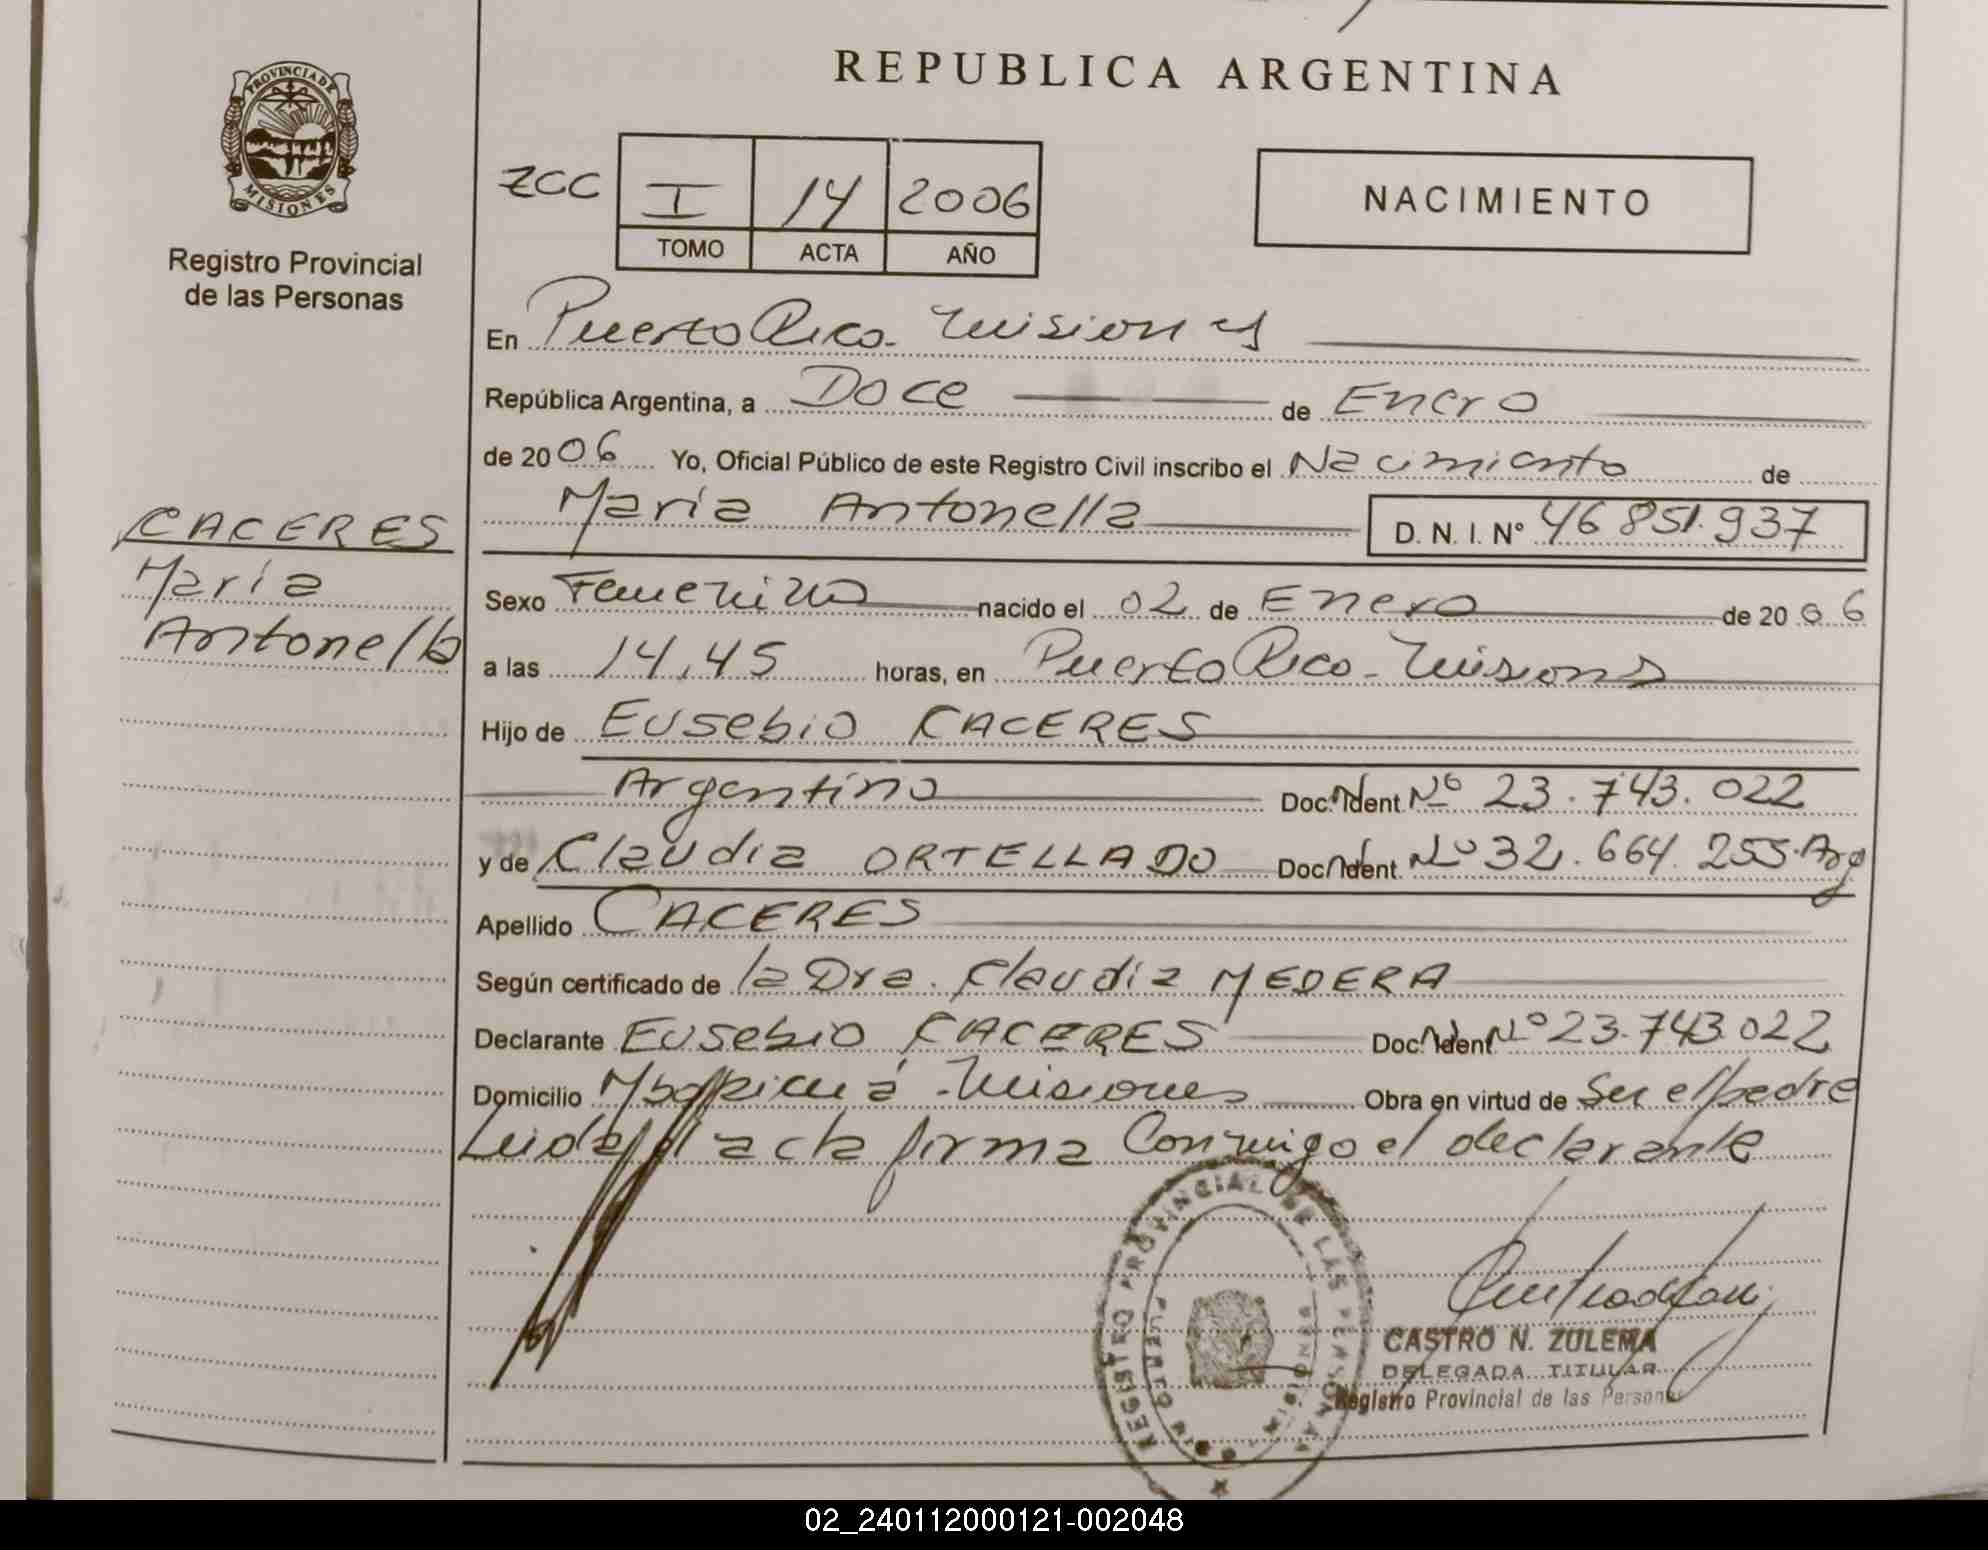 PROVINCIA DE
MISIONES
Registro Provincial
de las Personas
CACERES
María
Antonella
REPUBLICA ARGENTINA
ZCC I 14 2006
TOMO ACTA AÑO
NACIMIENTO
En Puerto Rico - Misiones
República Argentina, a Doce de Enero
de 2006 Yo, Oficial Público de este Registro Civil inscribo el Nacimiento de
María Antonella D. N. I. Nº 46 851.937
Sexo Femenino nacido el 02 de Enero de 2006
a las 14,45 horas, en Puerto Rico - Misiones
Hijo de Eusebio CACERES
Argentino Doc. Ident Nº 23.743.022
y de Claudia ORTELLADO Doc. Ident. Nº 32.664.255. Arg
Apellido CACERES
Según certificado de la Dra. Claudia MEDERA
Declarante Eusebio CACERES Doc. Ident Nº 23.743.022
Domicilio Mbopicuá - Misiones Obra en virtud de Ser el padre
Leida el acta firma Conmigo el declarante
REGISTRO PROVINCIAL DE LAS PERSONAS
PUERTO RICO MISIONES
CASTRO N. ZULEMA
DELEGADA TITULAR
Registro Provincial de las Personas
02_240112000121-002048